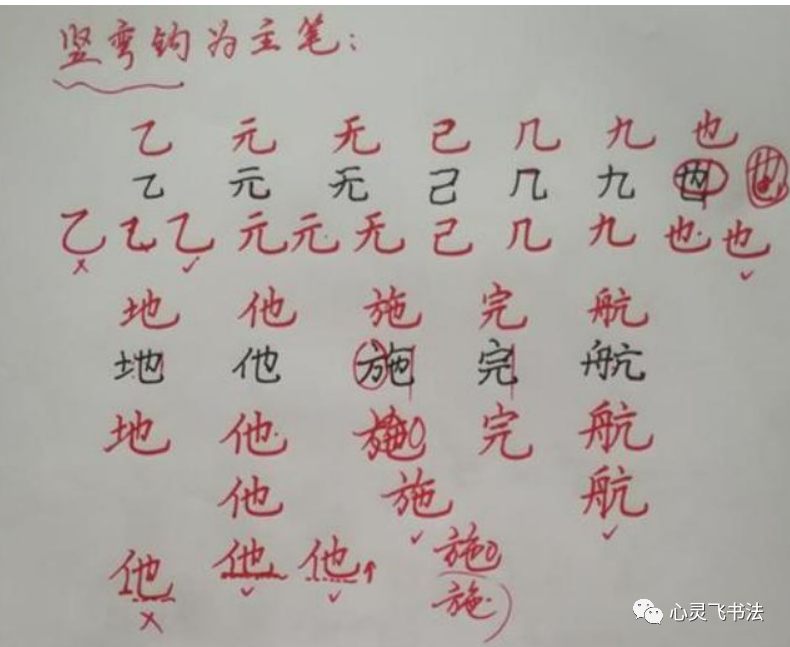 竖弯钩为主笔：
乙 元 无 己 几 九 也
乙 元 无 己 几 九 也 也
乙 乙 乙 元 元 无 己 几 九 也 也
地 他 施 完 航
地 他 施 完 航
地 他 施 完 航
他 施 航
他 他 他 施
施
心灵飞书法